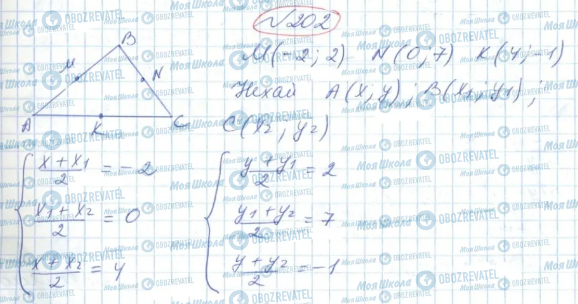 №202
M(-2; 2) N(0; 7) K(4; -1)
Нехай A(x, y); B(x₁; y₁);
C(x₂; y₂)
B
M N
A K C
{ (x + x₁)/2 = -2
(x₁ + x₂)/2 = 0
(x + x₂)/2 = 4
{ (y + y₁)/2 = 2
(y₁ + y₂)/2 = 7
(y + y₂)/2 = -1
Моя Школа
OBOZREVATEL